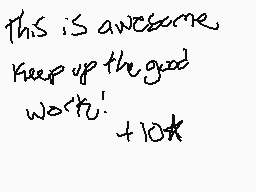 this is awesome
keep up the good
work!
+10★